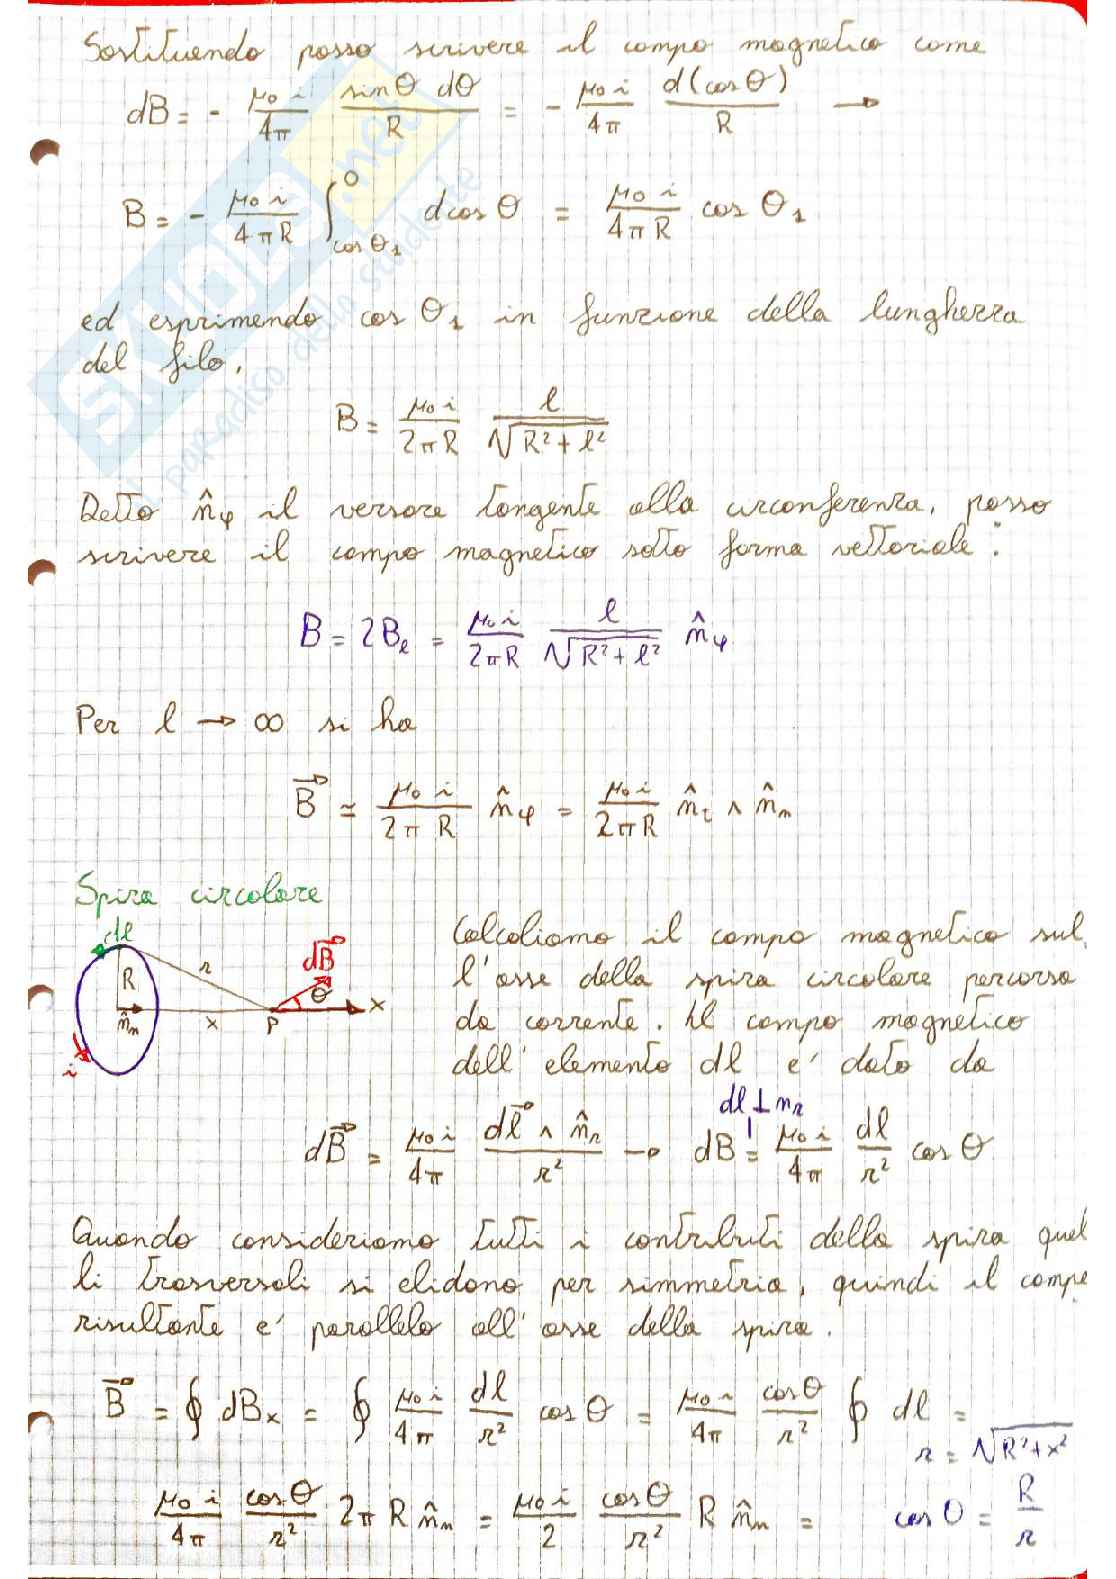 Sostituendo posso scrivere il campo magnetico come
dB = - μ₀ i / 4π sinθ dθ / R = - μ₀ i / 4π d(cosθ) / R →
B = - μ₀ i / 4πR ∫_{cosθ₁}^{0} dcosθ = μ₀ i / 4πR cosθ₁
ed esprimendo cosθ₁ in funzione della lunghezza
del filo,
B = μ₀ i / 2πR l / √(R² + l²)
Detto n̂φ il versore tangente alla circonferenza, posso
scrivere il campo magnetico sotto forma vettoriale:
B = 2Bₗ = μ₀ i / 2πR l / √(R² + l²) n̂φ
Per l → ∞ si ha
B⃗ ≃ μ₀ i / 2πR n̂φ = μ₀ i / 2πR n̂t ∧ n̂n
Spira circolare
dl
r
R
n̂n
x
P
dB⃗
θ
x
i
Calcoliamo il campo magnetico sul
l'asse della spira circolare percorsa
da corrente. Il campo magnetico
dell'elemento dl e' dato da
dl ⊥ nr
dB⃗ = μ₀ i / 4π dl⃗ ∧ n̂r / r² → dB = μ₀ i / 4π dl / r² cosθ
Quando consideriamo tutti i contributi della spira quel
li trasversali si elidono per simmetria, quindi il campo
risultante e' parallelo all'asse della spira.
B⃗ = ∮ dBx = ∮ μ₀ i / 4π dl / r² cosθ = μ₀ i / 4π cosθ / r² ∮ dl =
r = √(R² + x²)
μ₀ i / 4π cosθ / r² 2πR n̂n = μ₀ i / 2 cosθ / r² R n̂n = cosθ = R / r
SKUOLA.net
il paradiso dello studente